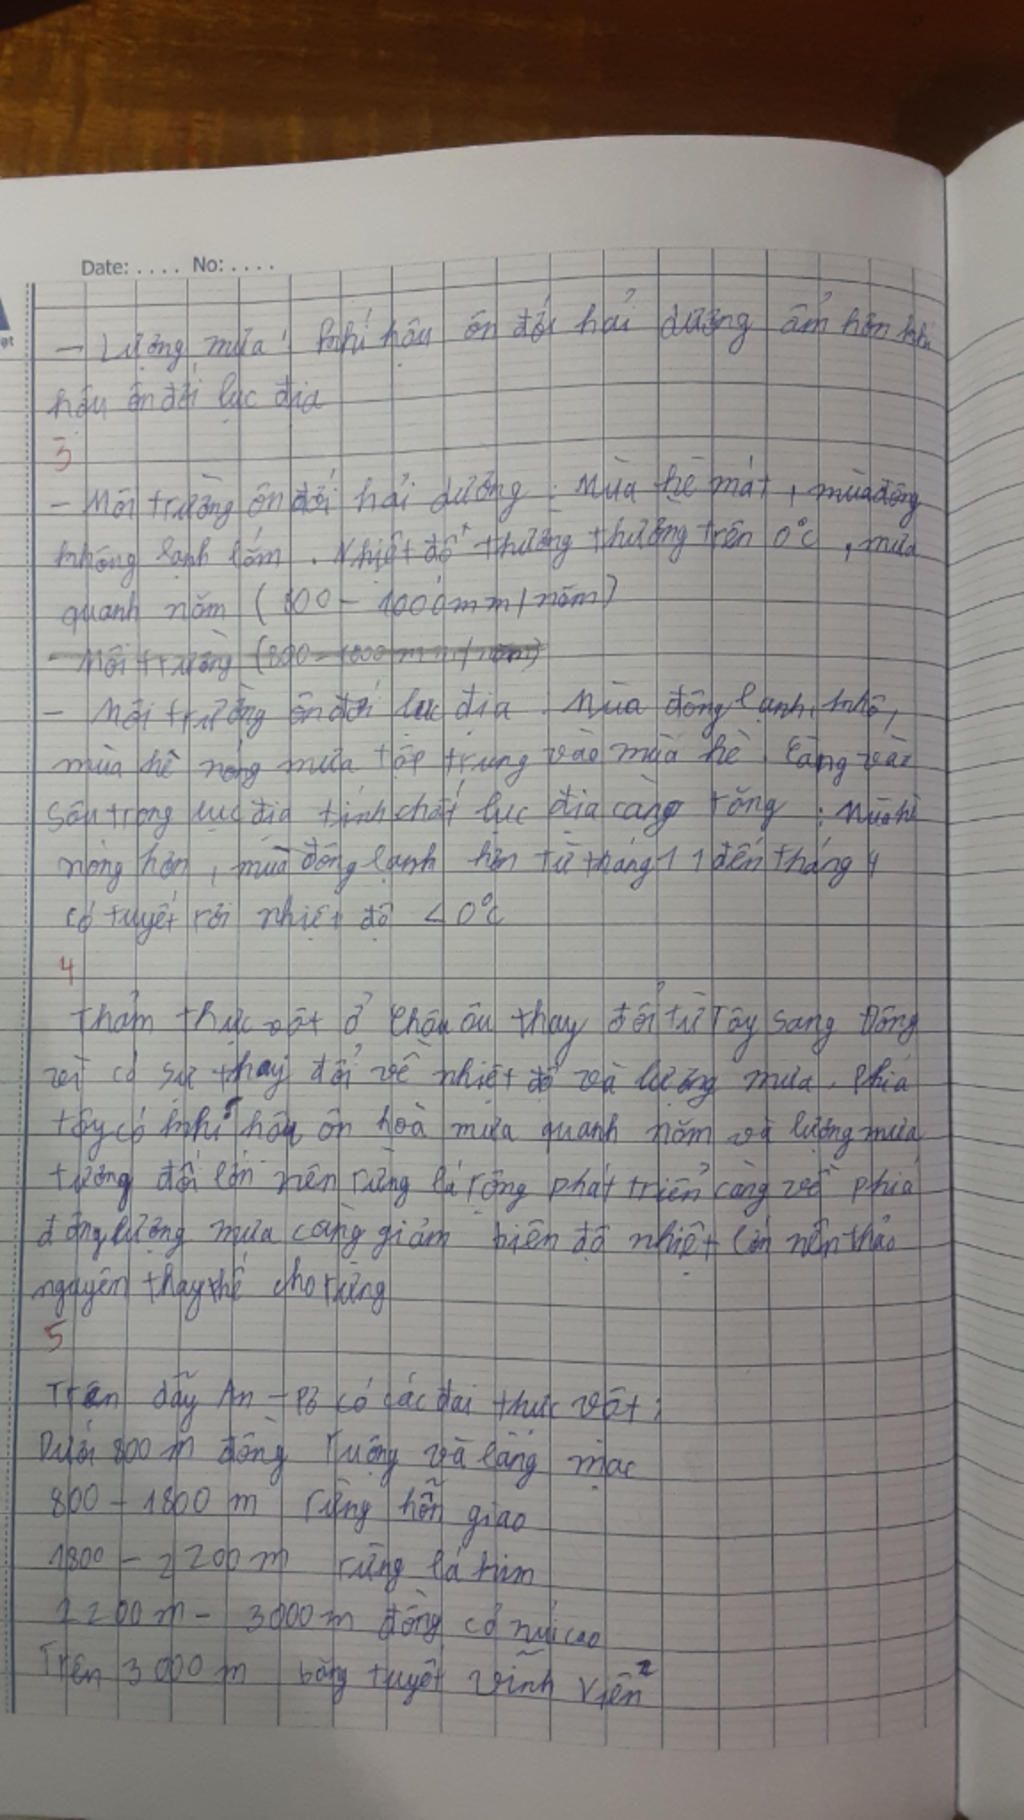 Date: .... No: ....
- Lượng mưa : khí hậu ôn đới hải dương ẩm hơn khí
hậu ôn đới lục địa
3
- Môi trường ôn đới hải dương : Mùa hè mát , mùa đông
không lạnh lắm . Nhiệt độ thường thường trên 0°C , mưa
quanh năm ( 800 - 1000mm/năm)
- Môi trường (800 - 1800mm/năm)
- Môi trường ôn đới lục địa . Mùa đông lạnh, khô,
mùa hè nóng mưa tập trung vào mùa hè , càng vào
sâu trong lục địa tính chất lục địa càng tăng : Mùa hè
nóng hơn , mùa đông lạnh hơn từ tháng 11 đến tháng 4
có tuyết rơi nhiệt độ <0°C
4
Thảm thực vật ở châu âu thay đổi từ Tây sang Đông
vì có sự thay đổi về nhiệt độ và lượng mưa. Phía
tây có khí hậu ôn hoà mưa quanh năm và lượng mưa
tương đối lớn nên rừng lá rộng phát triển càng về phía
đông lượng mưa càng giảm biên độ nhiệt lớn nên thảo
nguyên thay thế cho rừng
5
Trên dãy An - Pơ có các đai thực vật :
Dưới 800 m đồng ruộng và làng mạc
800 - 1800 m rừng hỗn giao
1800 - 2200 m rừng lá kim
2200 m - 3000 m đồng cỏ núi cao
Trên 3000 m băng tuyết vĩnh viễn